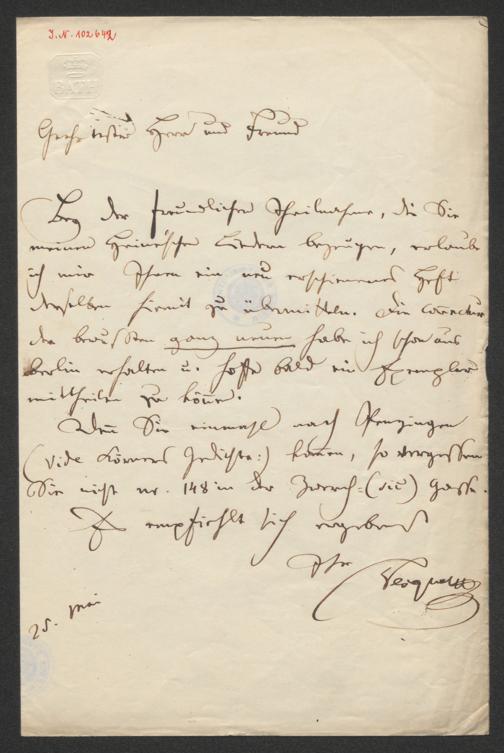 J. N. 102642
BATH
Geehrtester Herr und Freund
Bey der freundlichen Theilnahme, die Sie
meinen Heine'schen Liedern bezeugen, erlaube
ich mir Ihnen ein neu erschienenes Heft
derselben hiemit zu übermitteln. Die Correctur
der bewußten ganz neuen habe ich schon aus
Berlin erhalten u. hoffe bald ein Exemplar
mittheilen zu können.
Wenn Sie einmahl nach Penzingen
(vide Körners Gedichte:) kommen, so vergessen
Sie nicht nr. 148 in der (sic) Gasse.
Es empfiehlt sich ergebenst
Ihr Vesque
25. Mai